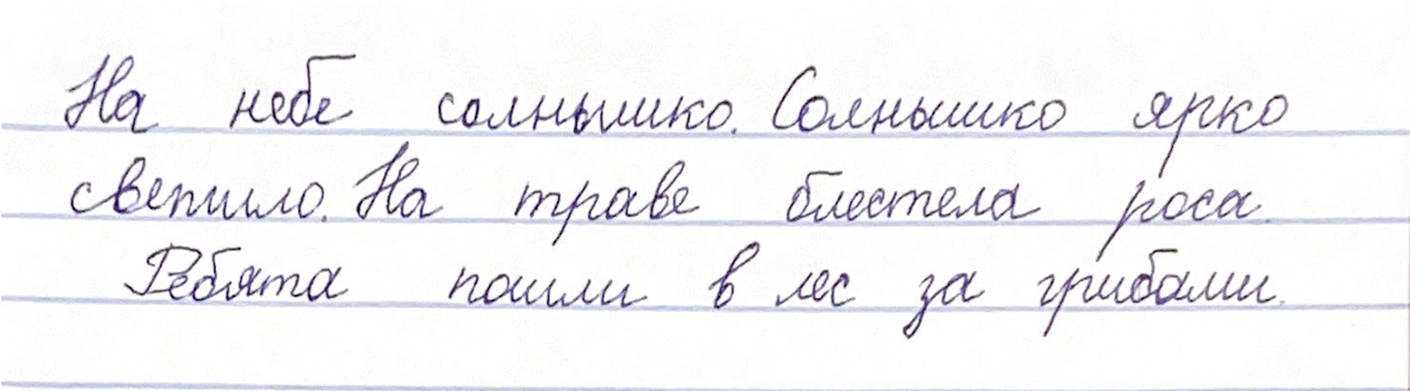 На небе солнышко. Солнышко ярко
светило. На траве блестела роса.
Ребята пошли в лес за грибами.